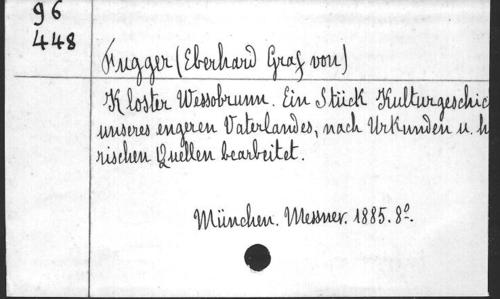 96
448
Fugger (Eberhard Graf von)
Kloster Wessobrunn. Ein Stück Kulturgeschic
unseres engeren Vaterlandes, nach Urkunden u. h
rischen Quellen bearbeitet.
München. Messner. 1885. 8°.